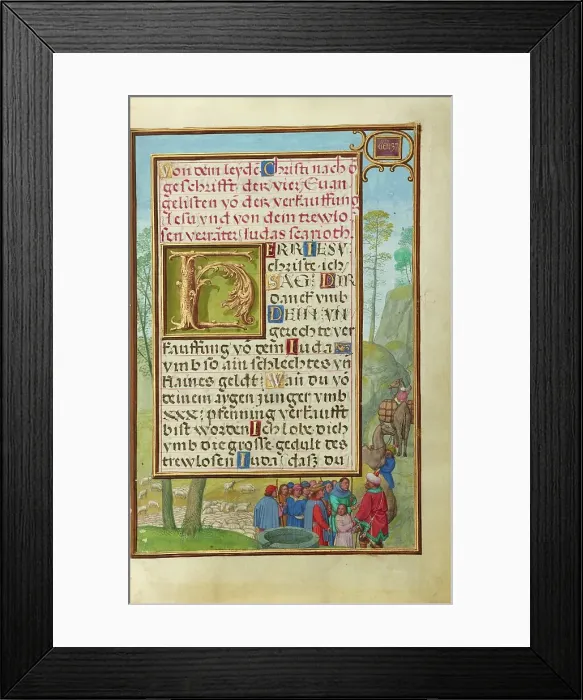 GEN 37
Von dem leydē Christi nach d
geschrifft der vier Euan
gelisten vō der verkauffung
Jesu vnd von dem trewlo
sen verräter Judas scarioth.
HERR IESV
christe ich
SAG DIR
danck vmb
DEIN VN
gerechte ver
kauffung vō dem Iuda
vmb so ain schlechtes vn
klaines geldt Wan du vō
deinem argen junger vmb
xxx: pfenning verkaufft
bist worden Ich lobe dich
vmb die grosse gedult des
trewlosen Iuda daß du